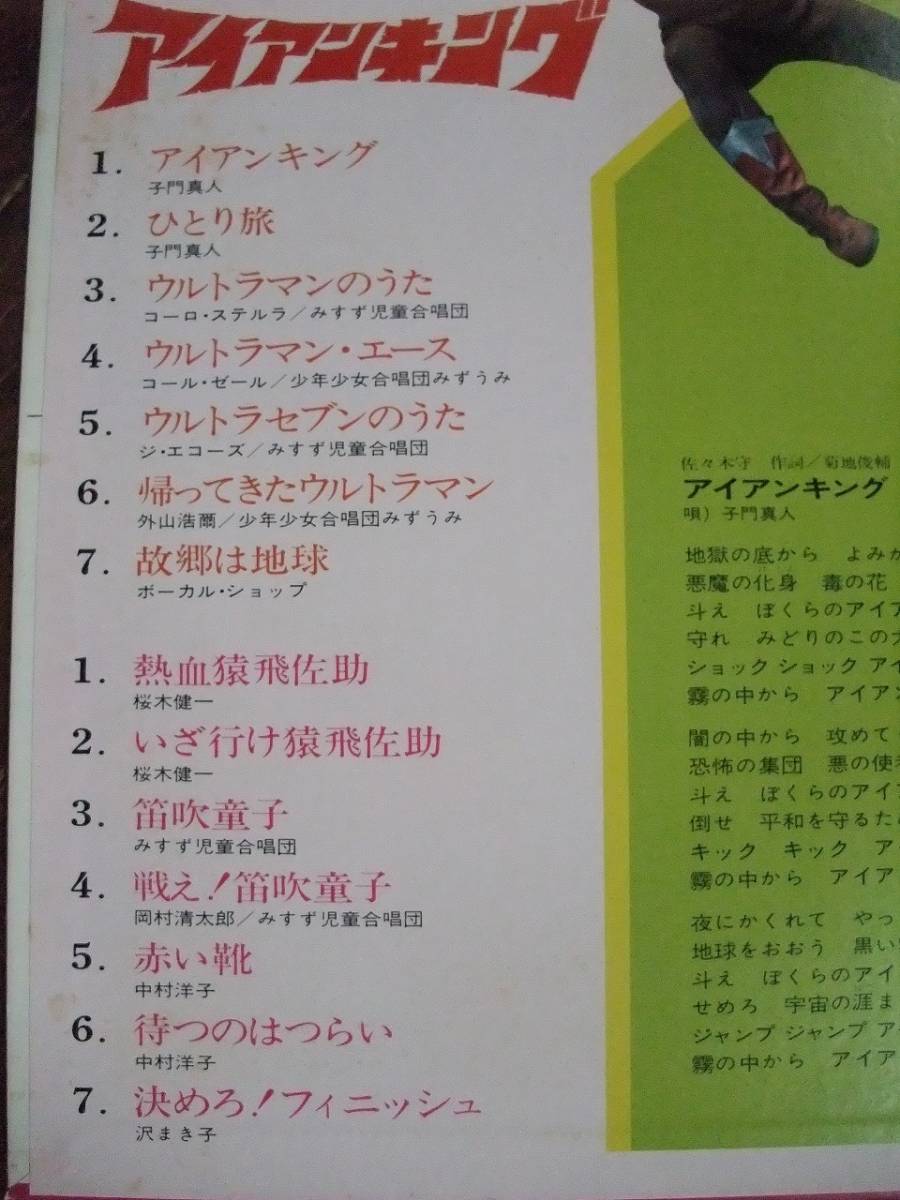 アイアンキング
1. アイアンキング
子門真人
2. ひとり旅
子門真人
3. ウルトラマンのうた
コーロ・ステルラ／みすず児童合唱団
4. ウルトラマン・エース
コール・ゼール／少年少女合唱団みずうみ
5. ウルトラセブンのうた
ジ・エコーズ／みすず児童合唱団
6. 帰ってきたウルトラマン
外山浩爾／少年少女合唱団みずうみ
7. 故郷は地球
ボーカル・ショップ
1. 熱血猿飛佐助
桜木健一
2. いざ行け猿飛佐助
桜木健一
3. 笛吹童子
みすず児童合唱団
4. 戦え！笛吹童子
岡村清太郎／みすず児童合唱団
5. 赤い靴
中村洋子
6. 待つのはつらい
中村洋子
7. 決めろ！フィニッシュ
沢まき子
佐々木守 作詞／菊地俊輔
アイアンキング
唄）子門真人
地獄の底から よみが
悪魔の化身 毒の花
斗え ぼくらのアイア
守れ みどりのこの大
ショック ショック アイ
霧の中から アイアン
闇の中から 攻めて
恐怖の集団 悪の使者
斗え ぼくらのアイア
倒せ 平和を守るため
キック キック ア
霧の中から アイア
夜にかくれて やっ
地球をおおう 黒い
斗え ぼくらのアイ
せめろ 宇宙の涯ま
ジャンプ ジャンプ ア
霧の中から アイア